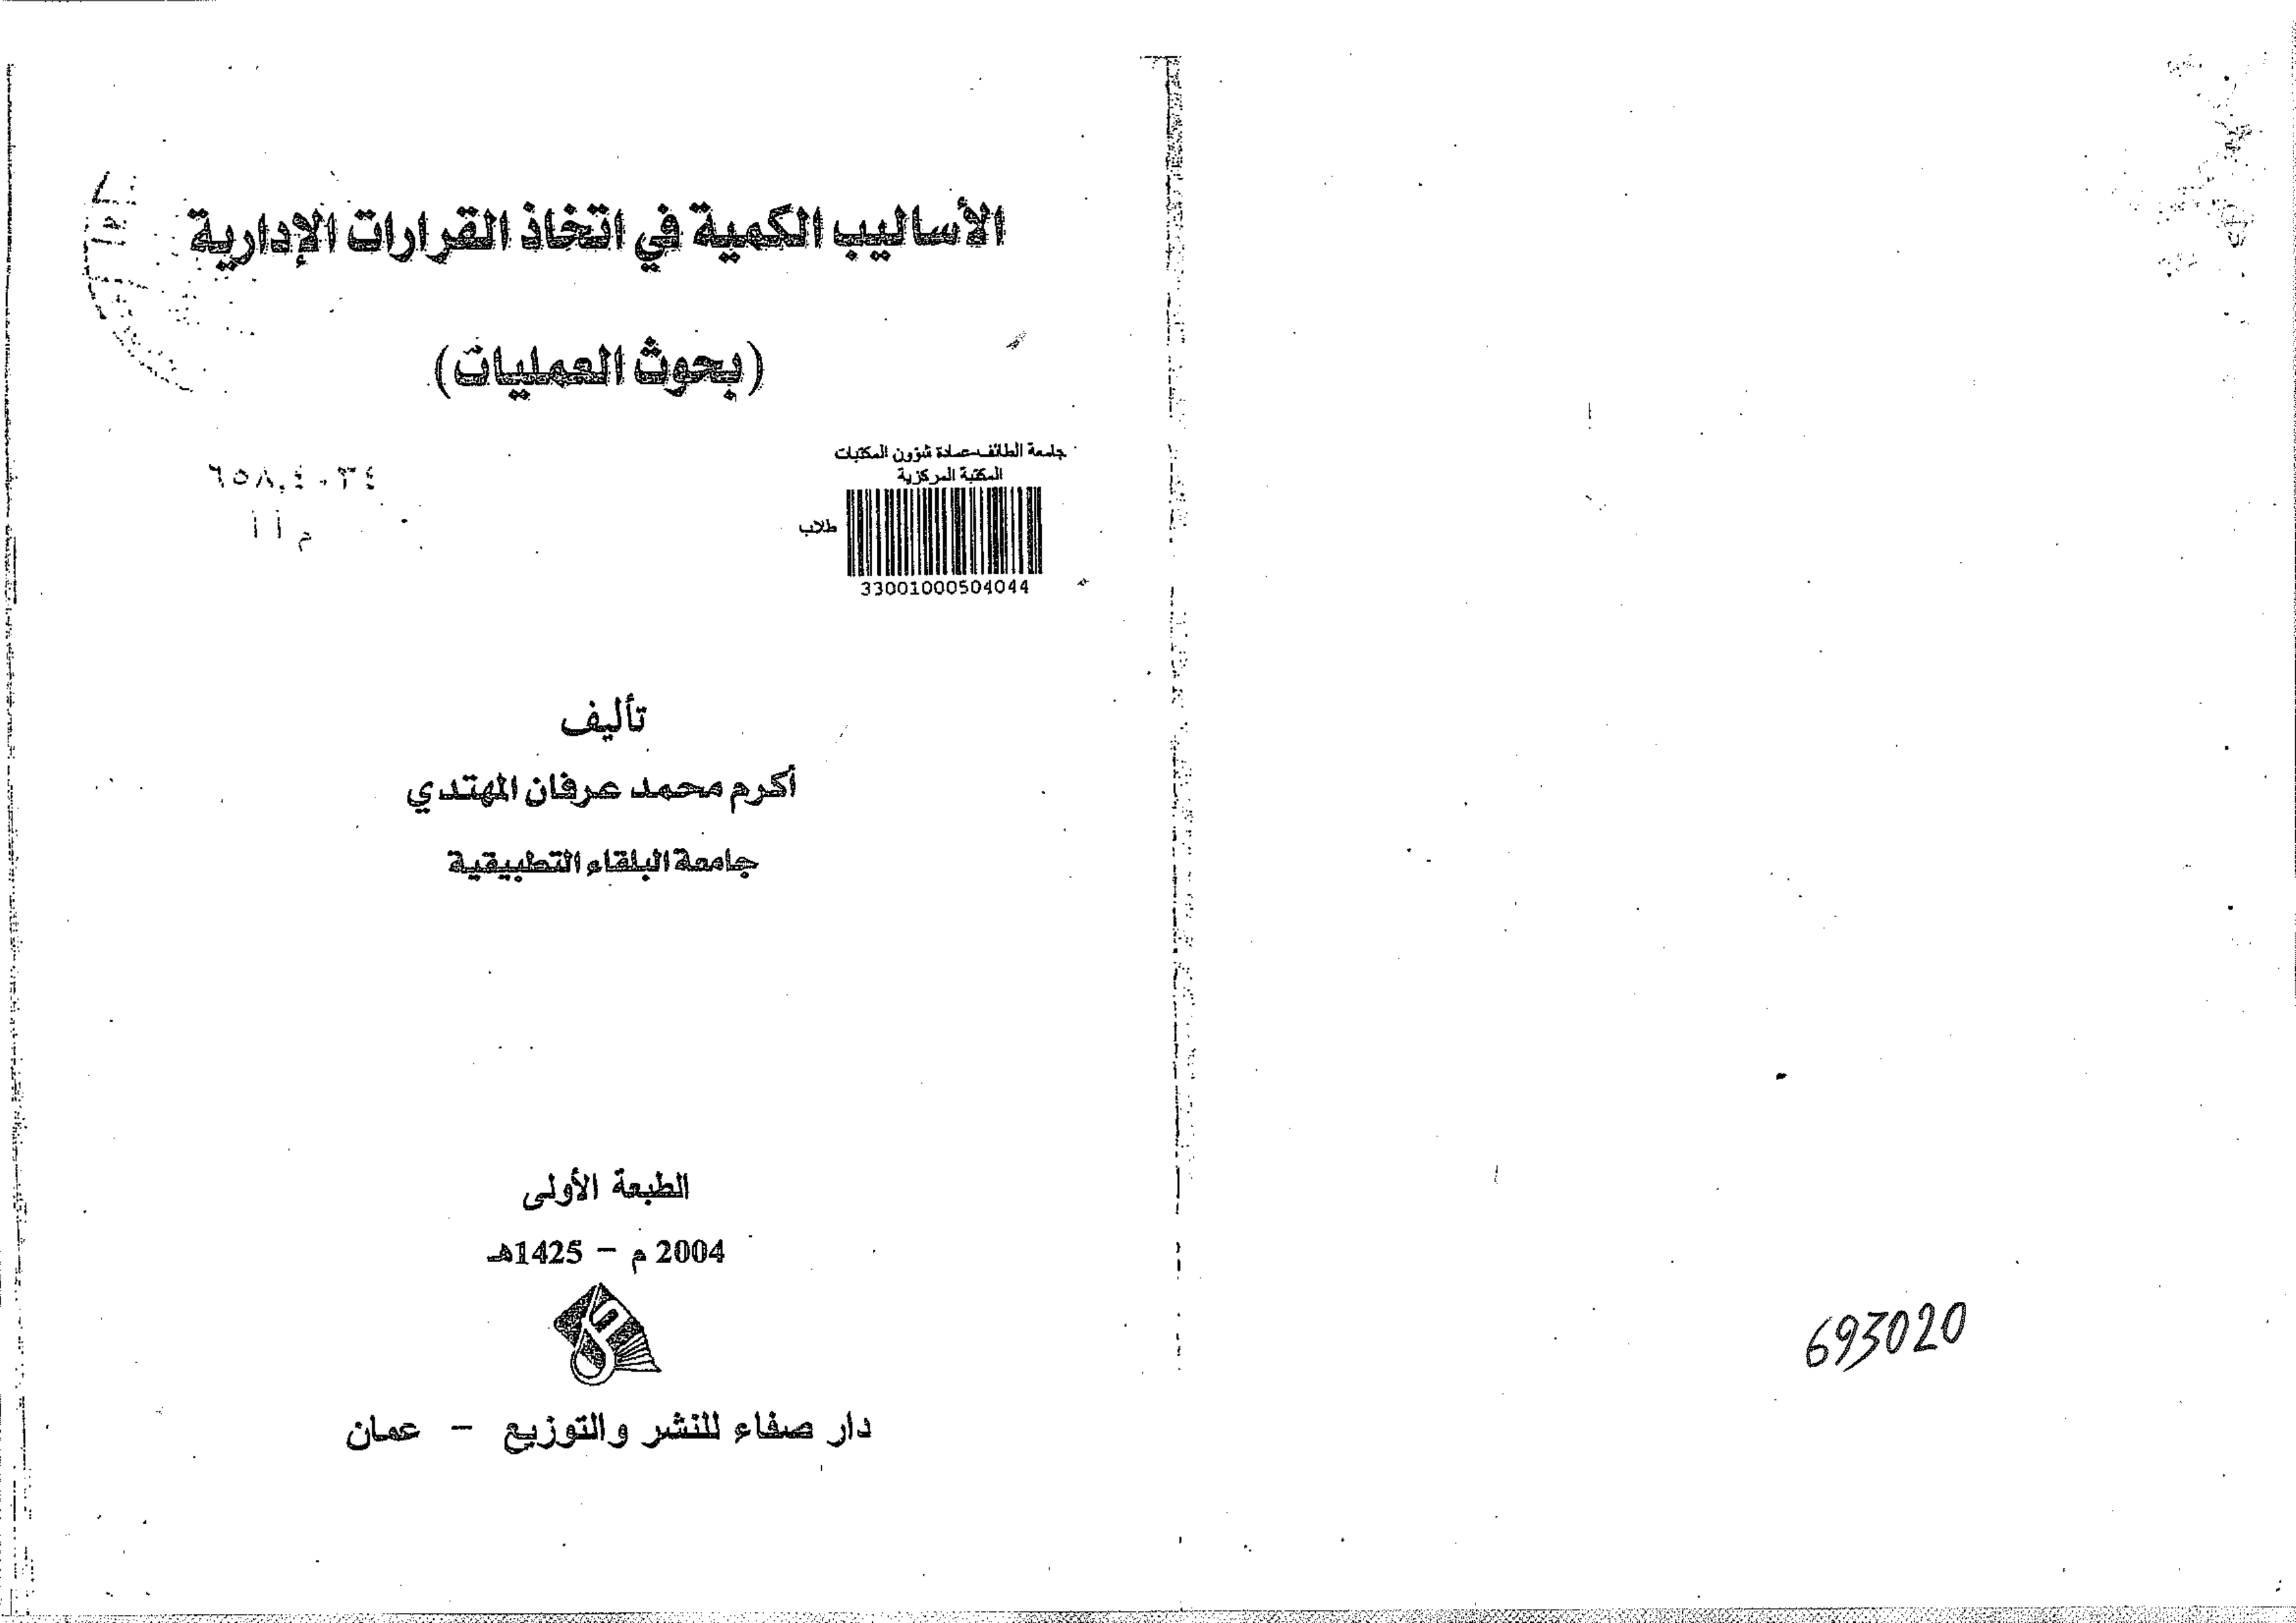 الأساليب الكمية في اتخاذ القرارات الإدارية
(بحوث العمليات)
جامعة الطائف-عمادة شؤون المكتبات
المكتبة المركزية
طلاب
330010000504044
٦٥٨,٤٠٣٤
م أ أ
تأليف
أكرم محمد عرفان المهتدي
جامعة البلقاء التطبيقية
الطبعة الأولى
2004 م – 1425هـ
دار صفاء للنشر والتوزيع – عمان
693020